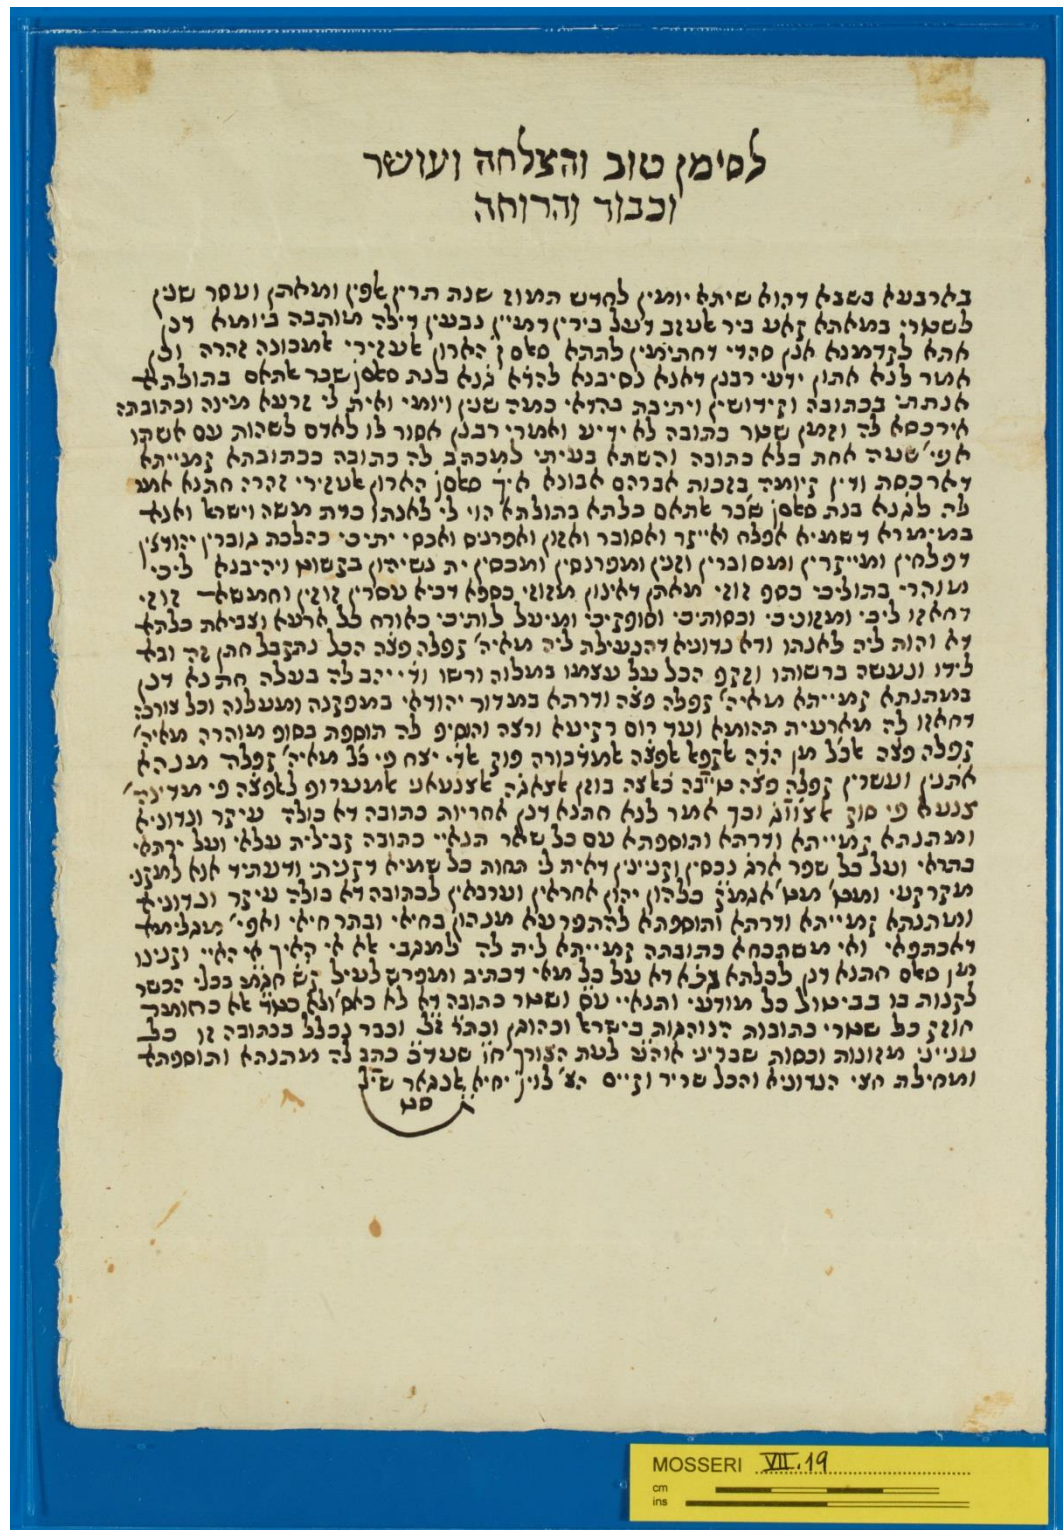 לסימן טוב והצלחה ועושר
וכבוד והרוחה
בארבעא בשבא דהוא שיתא יומין לחדש תמוז שנת תרין אלפין ומאתן ועסר שנין
לשטרי במאתא קאע ביר אלעזב דעל בירין דמיין נבעין דילה מותבה ביומא דנן
אתא לקדמנא אנן סהדי דחתימין לתתא סאלם הארון אלעזירי אלמכונה זהרה וכן
אמר לנא אתון ידעי רבנן דאנא נסיבנא להדא בנת סאלם שכר אלתאם בתולתא
אנתתי בכתובה וקידושין ויתיבת בהדאי כמה שנין ויומי ואית לי זרעא מינה וכתובתה
אירכסא לה וזמן שטר כתובה לא ידיע ואמרי רבנן אסור לו לאדם לשהות עם אשתו
אפי' שעה אחת בלא כתובה והשתא בעיתי למכתב לה כתובה ככתובתא קמייתא
דארכסת ודין קיומה בזכות אברהם אבונא איך סאלם הארון אלעזירי זהרה חתנא אמר
לה בנת סאלם שכר אלתאם כלתא בתולתא הוי לי לאנתו כדת משה וישראל ואנא
במימרא דשמיא אפלח ואייקר ואסובר ואזון ואפרנס ואכסי יתיכי כהלכת גוברין יהודאין
דפלחין ומייקרין ומסוברין וזנין ומפרנסין ומכסין ית נשיהון בקשוט ויהיבנא ליכי
מוהרי בתוליכי כסף זוזי מאתן דאינון מזוזי כספא דכיא עסרין זוזין וחמשא זוזי
דחאזו ליכי ומזוניכי וכסותיכי וסופקיכי ומיעל לותיכי כאורח כל ארעא וצביאת כלתא
דא והות ליה לאנתו ודא נדוניא דהנעילת ליה מאיה' קפלה פצה הכל נתקבל חתן זה ובא
לידו ונעשה ברשותו וזקף הכל על עצמו במלוה ורשו ודי יהב לה בעלה חתנא דנן
במתנתא קמייתא מאיה' קפלה פצה ודרתא במדור יהודאי במפקנה ומעלנה וכל צורכה
דחאזו לה מארעית תהומא ועד רום רקיעא ורצה והוסיף לה תוספת בסוף מוהרה מאיה'
קפלה פצה אלכל מן הדה אלקפאל אלפצה אלמדכורה פוק אלדי יצח פי כל מאיה' קפלה מנהא
אתנין ועשרין קפלה פצה טייבה כאלצה בוזן אלצאגה אלצנעאני אלמערוף לאלפצה פי מדינה'
צנעא פי סוק וכך אמר לנא חתנא דנן אחריות כתובה דא כולה עיקר ונדוניא
ומתנתא קמייתא ודרתא ותוספתא עם כל שאר תנאיי כתובה קבילית עלאי ועל ירתאי
בתראי ועל כל שפר ארג נכסין וקניינין דאית לי תחות כל שמיא דקניתי ודעתיד אנא למקני
מקרקעי ומט' מט' אגמ״ק כלהון יהון אחראין וערבאין לכתובה דא כולה עיקר ונדוניא
ומתנתא קמייתא ודרתא ותוספתא להתפרעא מנהון בחיאי ובתר חיאי ואפי' מגלימא
דאכתפאי ואי משתכחא כתובתה קמייתא לית לה למגבי אלא אי האיך אי האיי וקנינו
מן סאלם חתנא דנן לכלתא דא על כל מאי דכתיב ומפרש לעיל בכלי הכשר
לקנות בו בביטול כל מודעי ותנאיי ושטר כתובה דא לא כאס' ולא כטד אלא כחומר
חוזק כל שטרי כתובות הנוהגות בישראל וכהוגן וכבר נכלל בכתובה זו כל
ענייני מזונות וכסות שבריני לעת הצורך כתב לה מתנתא ותוספתא
ומחילת חצי הנדוניא והכל שריר וקיים הצ' יחיא